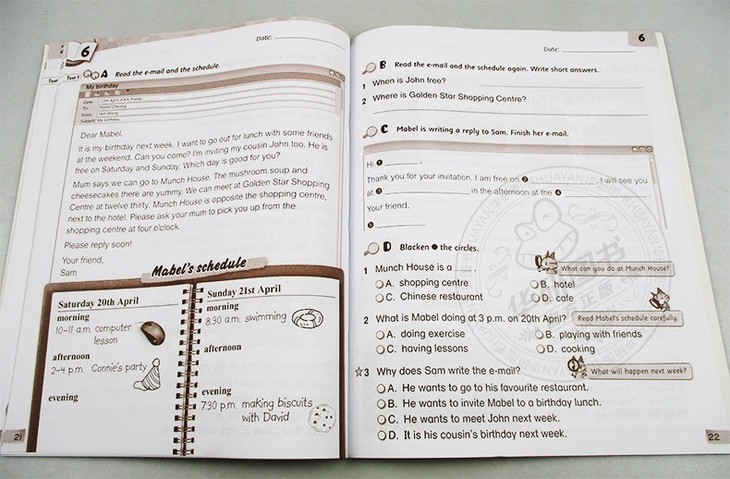 6
Date:
Test
Test 1
A Read the e-mail and the schedule.
My birthday
Date: 12th April 20XX, Friday
To: Mabel Cheung
From: Sam Wong
Subject: My birthday
Dear Mabel,
It is my birthday next week. I want to go out for lunch with some friends
at the weekend. Can you come? I'm inviting my cousin John too. He is
free on Saturday and Sunday. Which day is good for you?
Mum says we can go to Munch House. The mushroom soup and
cheesecakes there are yummy. We can meet at Golden Star Shopping
Centre at twelve thirty. Munch House is opposite the shopping centre,
next to the hotel. Please ask your mum to pick you up from the
shopping centre at four o'clock.
Please reply soon!
Your friend,
Sam
Mabel's schedule
Saturday 20th April
morning
10-11 a.m. computer
lesson
afternoon
2-4 p.m. Connie's party
evening
Sunday 21st April
morning
8:30 a.m. swimming
afternoon
evening
7:30 p.m. making biscuits
with David
21
Date:
6
B Read the e-mail and the schedule again. Write short answers.
1 When is John free?
2 Where is Golden Star Shopping Centre?
C Mabel is writing a reply to Sam. Finish her e-mail.
Hi 1 ,
Thank you for your invitation. I am free on 2 . I will see you
at 3 in the afternoon at the 4 .
Your friend,
5
D Blacken ● the circles.
1 Munch House is a ___.
What can you do at Munch House?
A. shopping centre
B. hotel
C. Chinese restaurant
D. cafe
2 What is Mabel doing at 3 p.m. on 20th April?
Read Mabel's schedule carefully.
A. doing exercise
B. playing with friends
C. having lessons
D. cooking
3 Why does Sam write the e-mail?
What will happen next week?
A. He wants to go to his favourite restaurant.
B. He wants to invite Mabel to a birthday lunch.
C. He wants to meet John next week.
D. It is his cousin's birthday next week.
22